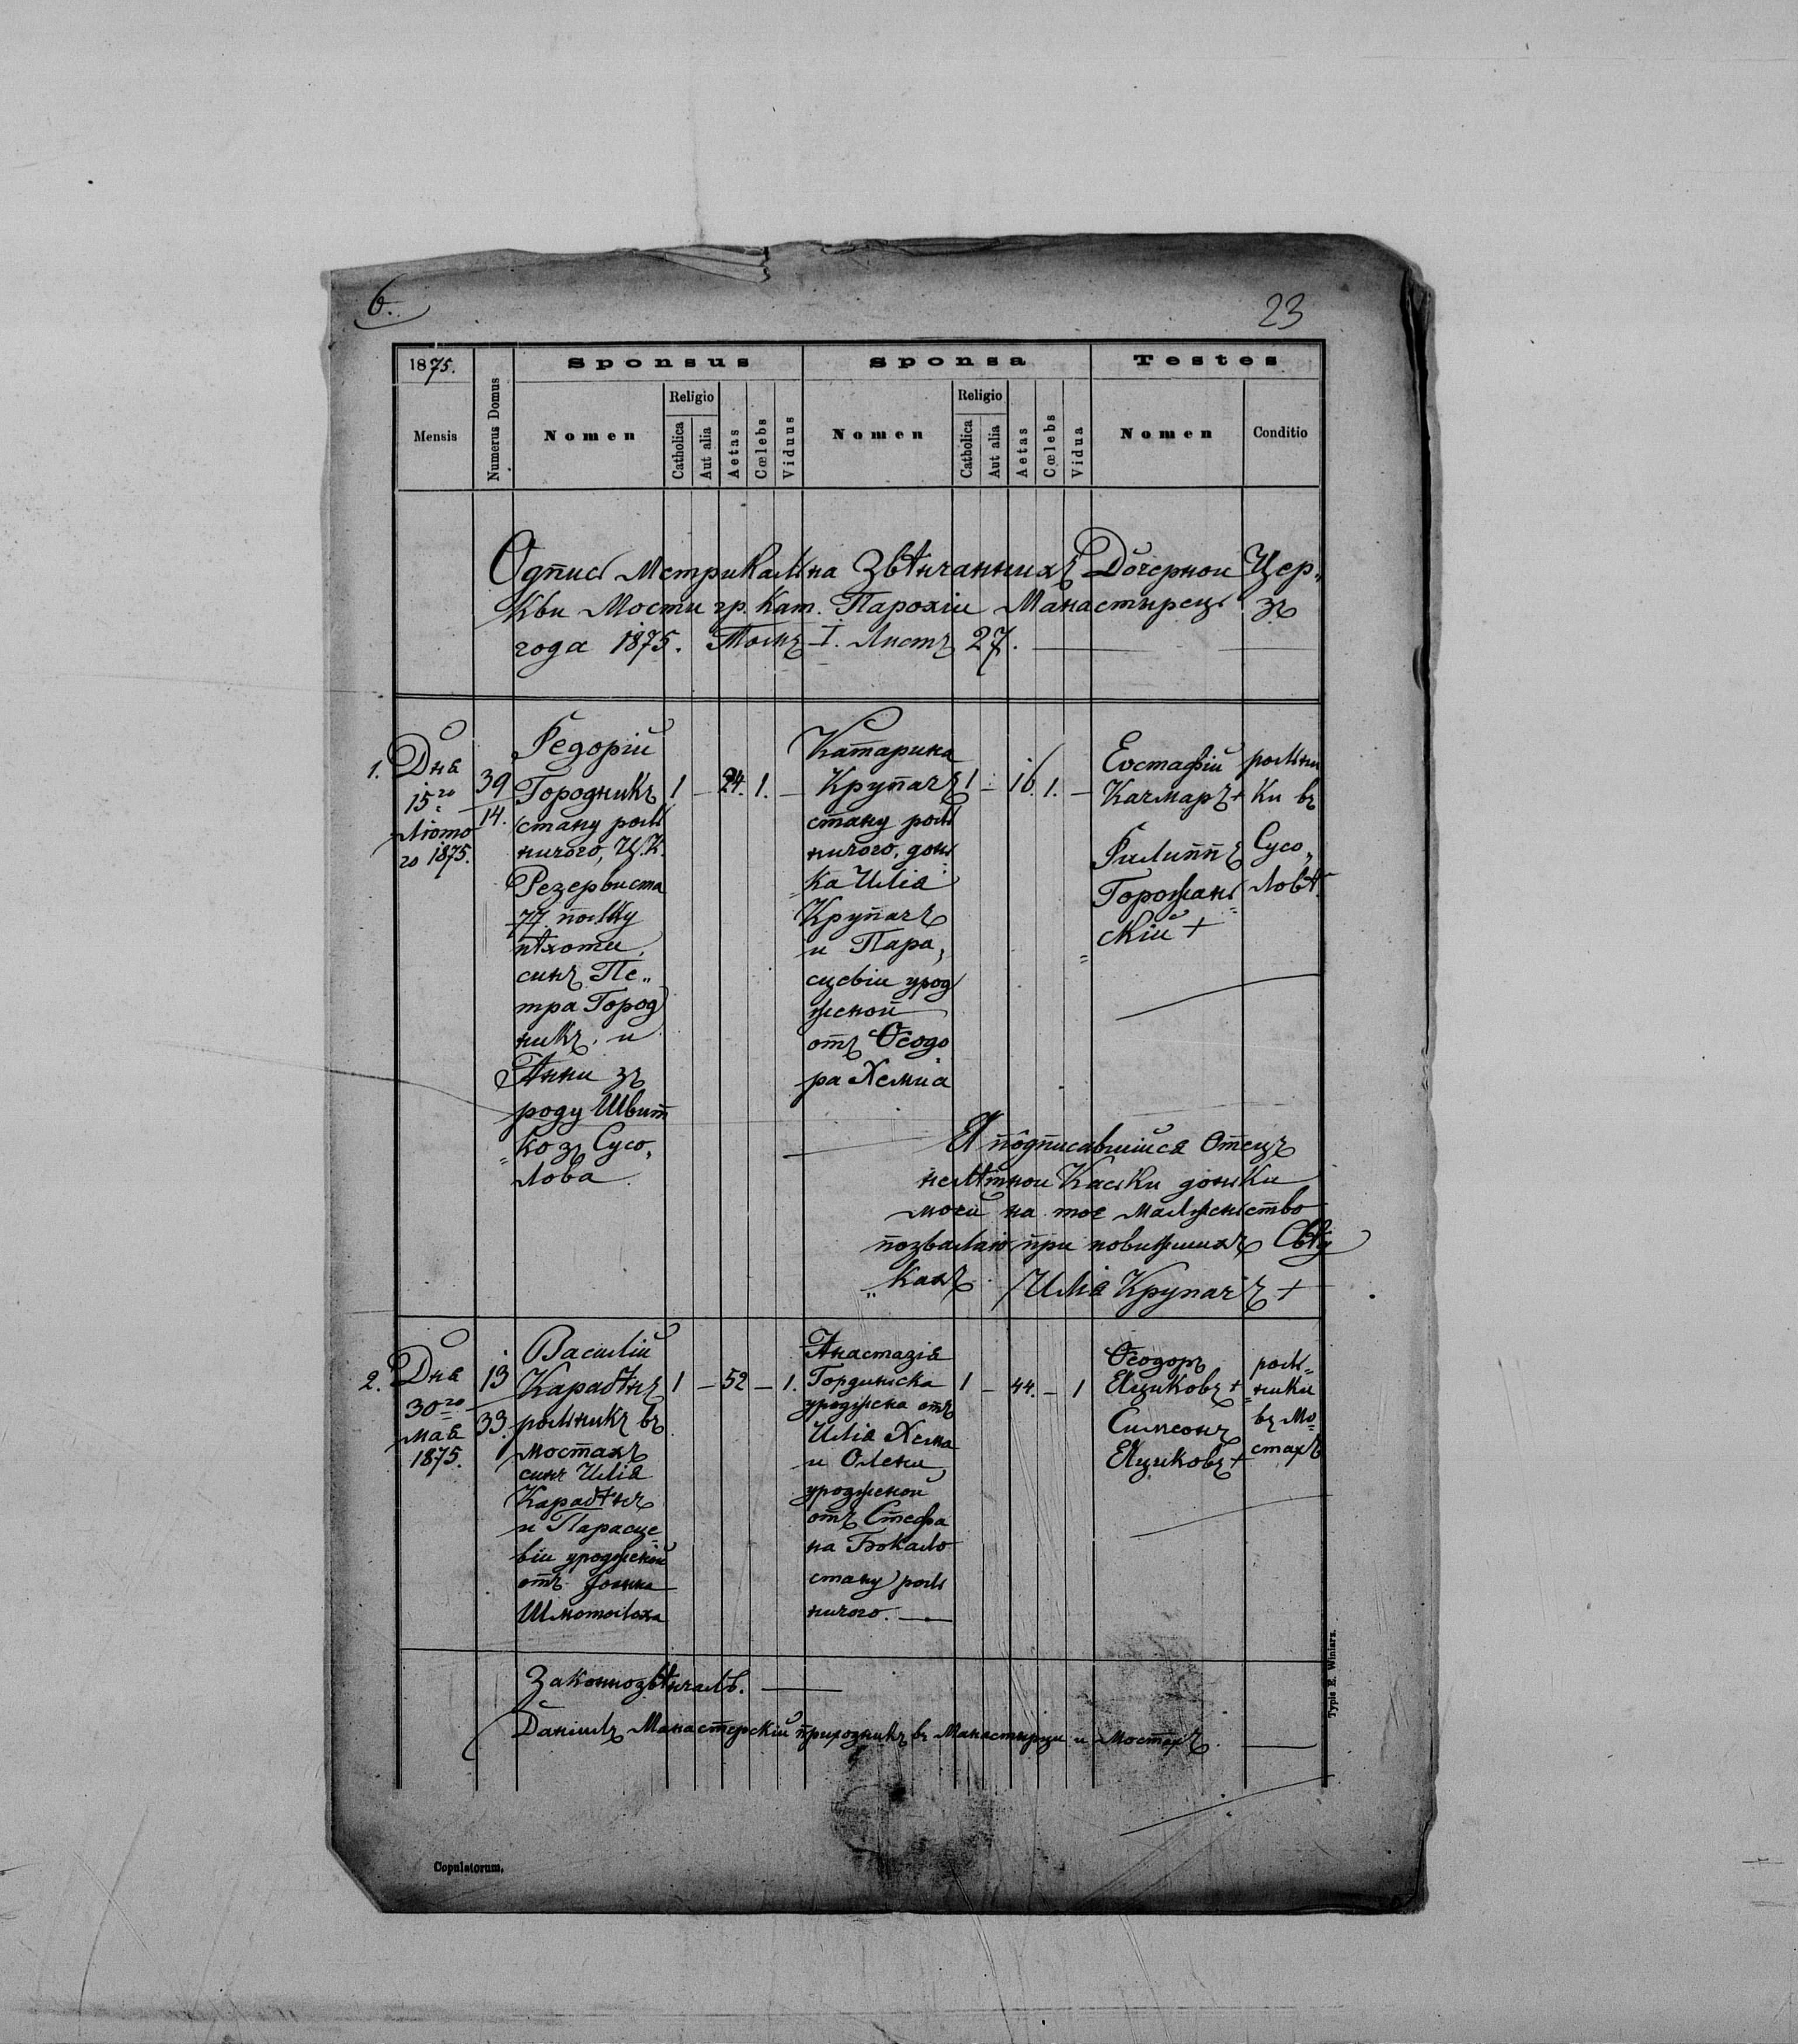 6.
23
1875.
Mensis
Numerus Domus
Sponsus
Nomen
Religio
Catholica
Aut alia
Aetas
Cœlebs
Viduus
Sponsa
Nomen
Religio
Catholica
Aut alia
Aetas
Cœlebs
Vidua
Testes
Nomen
Conditio
Одпись Метрикальна Звѣнчанныхъ Дочернои Цер„
кви Мости гр. кат. Парохіи Манастирець зъ
года 1875. Томъ I. Листъ 27.
1. Дня
15го
Лютo
го 1875.
39
14.
Федорій
Городникъ
стану роль
ничого, Ц.К.
Резервиста
77. полку
пѣхоти,
синъ Пе„
тра Город
никъ. и
Анни зъ
роду Швит
„ко зъ Сусо„
лова.
1 — 24. 1. —
Катарина
Крупачъ
стану роль
ничого, донь
ка Илія
Крупачъ
и Пара„
сцевіи урод
женой
отъ Ѳеодо
ра Хемиа
1 — 16. 1. —
Евстафій
Качмаръ +
Филиппъ
Горожань
скій +
рольни
ки въ
Сусо„
ловѣ.
Я подписавшійся Отецъ
нелѣтнои Каськи доньки
моеи на тое малженьство
позваляю при повижшихъ Свѣд
„кахъ. Илія Крупачъ +
2. Дня
30го
мая
1875.
13
33.
Василій
Карабѣнъ
рольникъ въ
мостахъ
синъ Илія
Карабѣнъ
и Парасце
віи уродженой
отъ Іоанна
Шмотолоха
1 — 52 — 1.
Анастазія
Гординьска
уроджена отъ
Илія Хема
и Олени,
уродженой
отъ Стефа
на Бокало
стану роль
ничого. —
1 — 44. — 1
Ѳеодоръ
Яциковъ +
Симеонъ
Яциковъ +
роль„
ники
въ Мо„
стахъ
Законнозвѣнчалъ. —
Даніилъ Манастерскій приходникъ въ Манастирци и Мостахъ. —
Typis E. Winiarz.
Copulatorum.